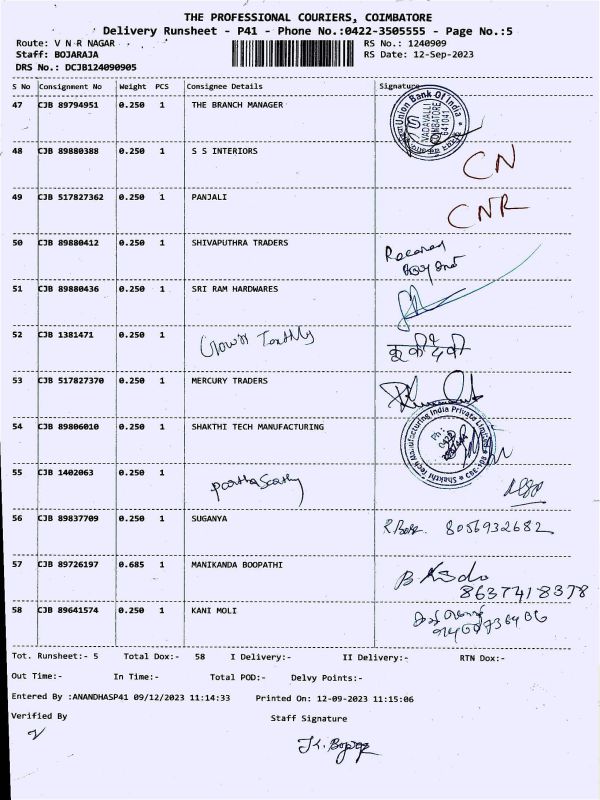 THE PROFESSIONAL COURIERS, COIMBATORE
Delivery Runsheet - P41 - Phone No.:0422-3505555 - Page No.:5
Route: V N R NAGAR RS No.: 1240909
Staff: BOJARAJA RS Date: 12-Sep-2023
DRS No.: DCJB124090905
S No Consignment No Weight PCS Consignee Details Signature
47 CJB 89794951 0.250 1 THE BRANCH MANAGER
Union Bank Of India
VADAVALLI
COIMBATORE
641041
48 CJB 89880388 0.250 1 S S INTERIORS CN
49 CJB 517827362 0.250 1 PANJALI CNR
50 CJB 89880412 0.250 1 SHIVAPUTHRA TRADERS Received
51 CJB 89880436 0.250 1 SRI RAM HARDWARES
52 CJB 1381471 0.250 1
53 CJB 517827370 0.250 1 MERCURY TRADERS
54 CJB 89806010 0.250 1 SHAKTHI TECH MANUFACTURING
Shakthi Tech Manufacturing India Private Limited
55 CJB 1402063 0.250 1
56 CJB 89837709 0.250 1 SUGANYA 8056932682
57 CJB 89726197 0.685 1 MANIKANDA BOOPATHI
8637418378
58 CJB 89641574 0.250 1 KANI MOLI
Tot. Runsheet:- 5 Total Dox:- 58 I Delivery:- II Delivery:- RTN Dox:-
Out Time:- In Time:- Total POD:- Delvy Points:-
Entered By :ANANDHASP41 09/12/2023 11:14:33 Printed On: 12-09-2023 11:15:06
Verified By Staff Signature